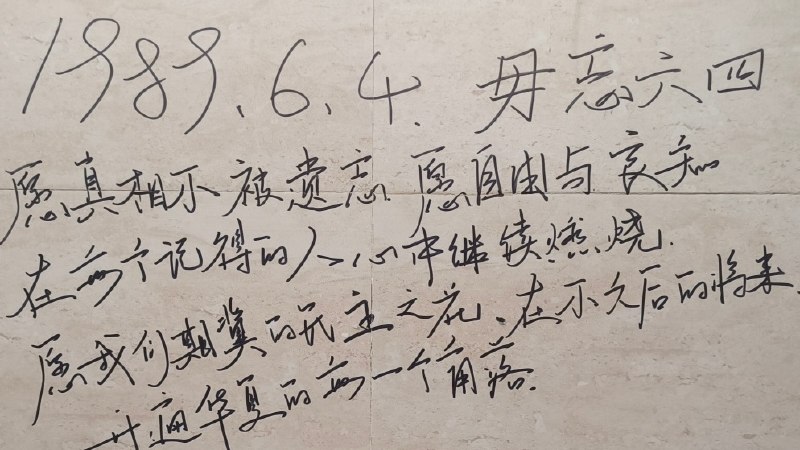 1989.6.4. 毋忘六四
愿真相不被遗忘 愿自由与良知
在每个记得的人心中继续燃烧.
愿我们期冀的民主之花、在不久后的将来、
开遍华夏的每一个角落.